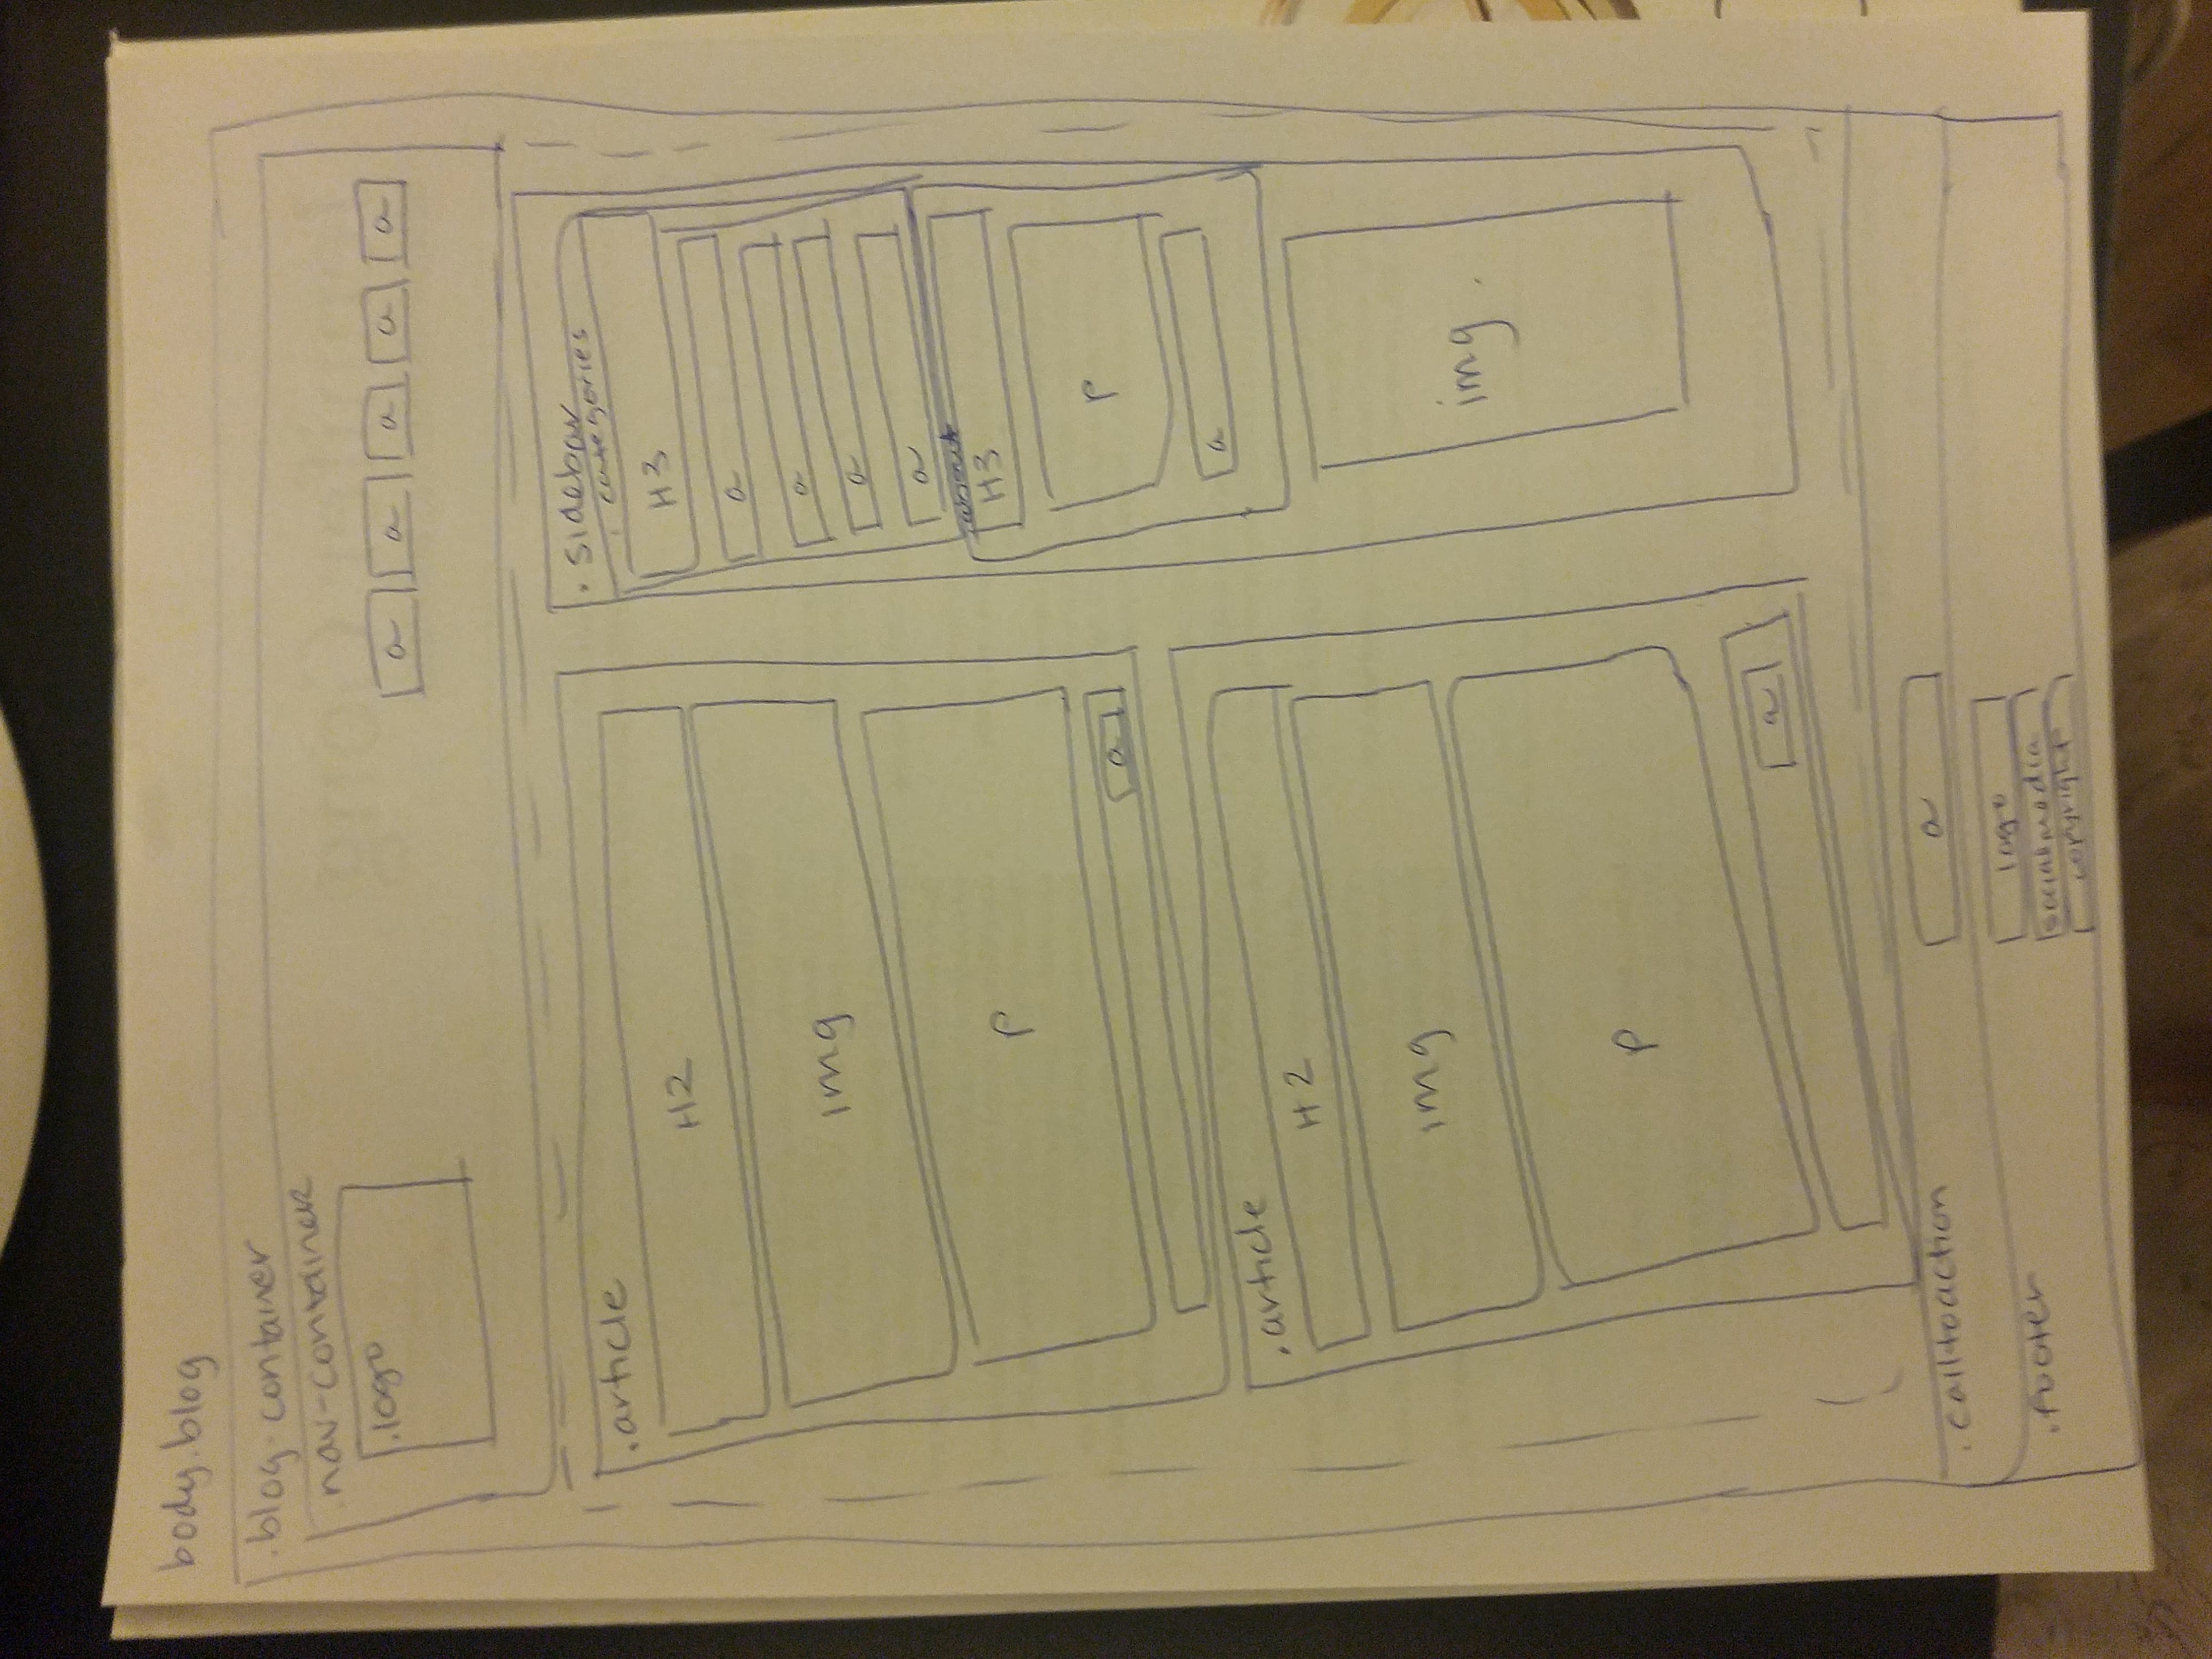 body.blog
.blog-container
nav-container
.logo
a a a a a
.article
H2
img
p
a
.article
H2
img
p
a
.sidebar
.categories
H3
a
a
a
a
about
H3
p
a
img.
.calltoaction
a
.footer
logo
socialmedia
copyright